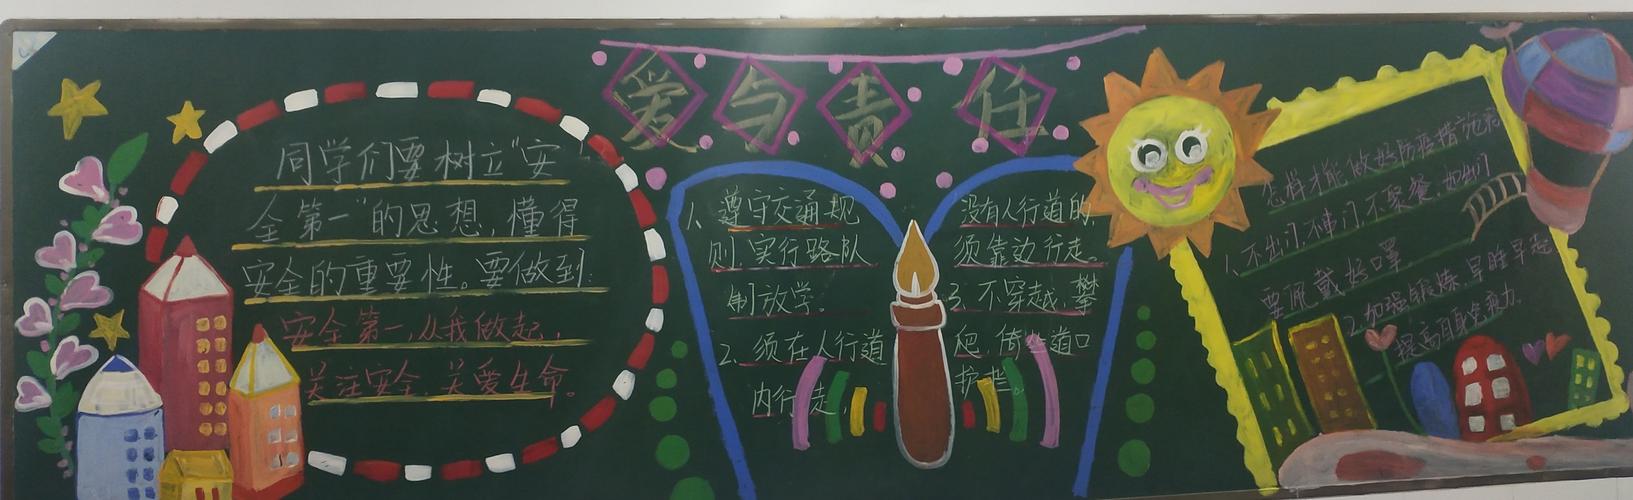 爱与责任
同学们要树立“安
全第一”的思想,懂得
安全的重要性。要做到:
安全第一,从我做起,
关注安全,关爱生命。
1、遵守交通规
则,实行路队
制放学。
2、须在人行道
内行走,
没有人行道的,
须靠边行走。
3、不穿越、攀
爬、倚坐道口
护栏。
怎样才能做好防疫措施呢
1、不出门,不串门,不聚餐,如出门
要佩戴好口罩
2、加强锻炼,早睡早起
提高自身免疫力.